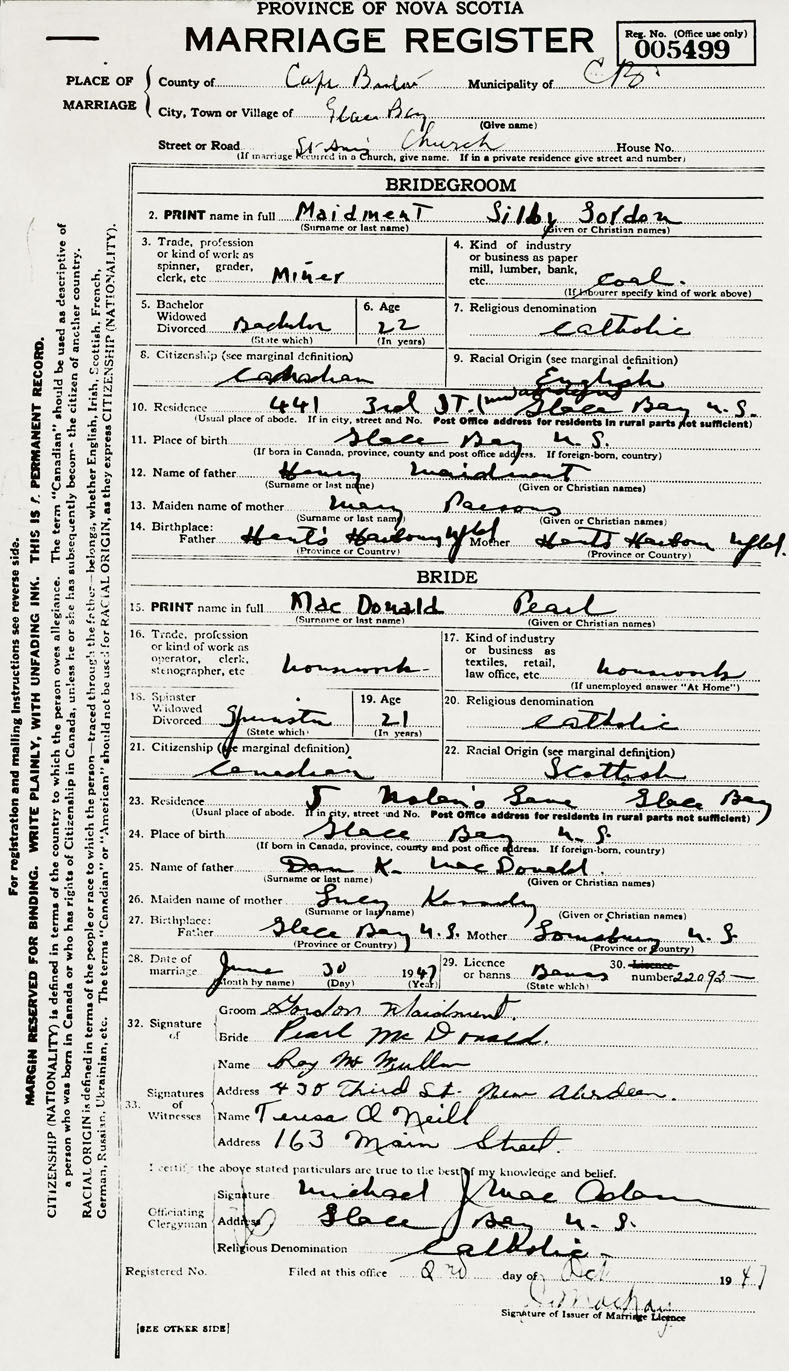 PROVINCE OF NOVA SCOTIA
MARRIAGE REGISTER
Reg. No. (Office use only)
005499
PLACE OF MARRIAGE
County of Cape Breton Municipality of C.B.
City, Town or Village of Glace Bay
(Give name)
Street or Road St Ann's Church House No.
(If marriage occurred in a Church, give name. If in a private residence give street and number)
BRIDEGROOM
2. PRINT name in full Maidment Silby Gordon
(Surname or last name) (Given or Christian names)
3. Trade, profession or kind of work as spinner, grader, clerk, etc Miner
4. Kind of industry or business as paper mill, lumber, bank, etc. coal.
(If labourer specify kind of work above)
5. Bachelor Widowed Divorced Bachelor
(State which)
6. Age 22
(In years)
7. Religious denomination
Catholic
8. Citizenship (see marginal definition)
Canadian
9. Racial Origin (see marginal definition)
English
10. Residence 441 3rd ST. (New Aberdeen) Glace Bay N.S.
(Usual place of abode. If in city, street and No. Post Office address for residents in rural parts not sufficient)
11. Place of birth Glace Bay N.S.
(If born in Canada, province, county and post office address. If foreign-born, country)
12. Name of father Henry Maidment
(Surname or last name) (Given or Christian names)
13. Maiden name of mother Mary Parsons
(Surname or last name) (Given or Christian names)
14. Birthplace: Father Hant's Harbour Nfld Mother Hants Harbour Nfld.
(Province or Country) (Province or Country)
BRIDE
15. PRINT name in full Mac Donald Pearl
(Surname or last name) (Given or Christian names)
16. Trade, profession or kind of work as operator, clerk, stenographer, etc housework
17. Kind of industry or business as textiles, retail, law office, etc. housework
(If unemployed answer "At Home")
18. Spinster Widowed Divorced Spinster
(State which)
19. Age 21
(In years)
20. Religious denomination
Catholic
21. Citizenship (see marginal definition)
Canadian
22. Racial Origin (see marginal definition)
Scottish
23. Residence 5 Nolan's Lane Glace Bay
(Usual place of abode. If in city, street and No. Post Office address for residents in rural parts not sufficient)
24. Place of birth Glace Bay N.S.
(If born in Canada, province, county and post office address. If foreign-born, country)
25. Name of father Dan K. MacDonald.
(Surname or last name) (Given or Christian names)
26. Maiden name of mother Lucy Kennedy
(Surname or last name) (Given or Christian names)
27. Birthplace: Father Glace Bay N.S. Mother N.S.
(Province or Country) (Province or Country)
28. Date of marriage June 30 1947
(Month by name) (Day) (Year)
29. Licence or banns Banns
(State which)
30. Licence number 22093
32. Signature of
Groom Gordon Maidment.
Bride Pearl McDonald.
33. Signatures of Witnesses
Name Roy McMullin
Address 430 Third St. New Aberdeen.
Name Teresa O Neill
Address 163 Main Street.
I certify the above stated particulars are true to the best of my knowledge and belief.
Officiating Clergyman
Signature Michael J Mac Adam
Address Glace Bay N.S.
Religious Denomination Catholic
Registered No. Filed at this office 2nd day of Oct 1947
Signature of Issuer of Marriage Licence
[SEE OTHER SIDE]
For registration and mailing instructions see reverse side.
MARGIN RESERVED FOR BINDING. WRITE PLAINLY, WITH UNFADING INK. THIS IS A PERMANENT RECORD.
CITIZENSHIP (NATIONALITY) is defined in terms of the country to which the person owes allegiance. The term "Canadian" should be used as descriptive of
a person who was born in Canada or who has rights of Citizenship in Canada, unless he or she has subsequently become the citizen of another country.
RACIAL ORIGIN is defined in terms of the people or race to which the person—traced through the father—belongs, whether English, Irish, Scottish, French,
German, Russian, Ukrainian, etc. The terms "Canadian" or "American" should not be used for RACIAL ORIGIN, as they express CITIZENSHIP (NATIONALITY).